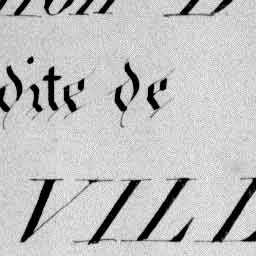 dite de
VILL